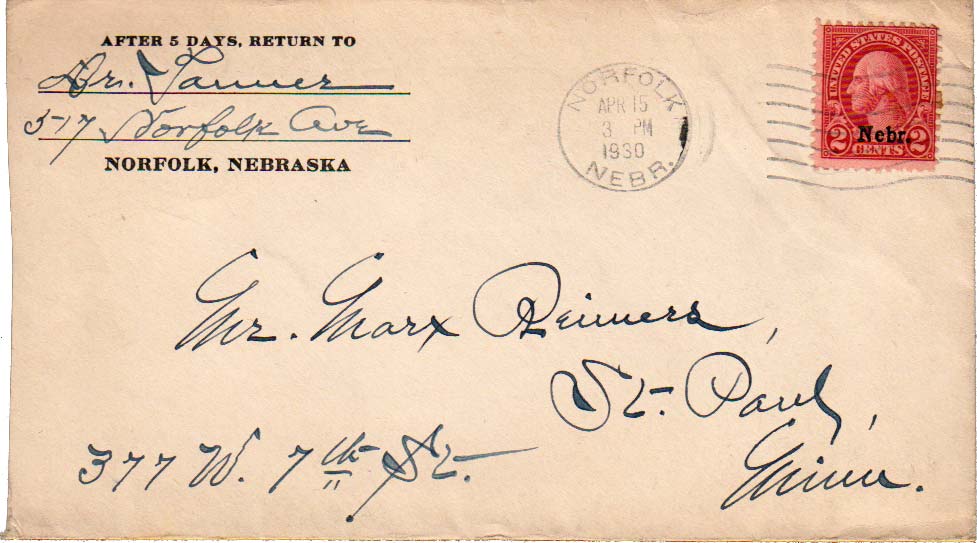 AFTER 5 DAYS, RETURN TO
Dr. Tanner
517 Norfolk Ave
NORFOLK, NEBRASKA
NORFOLK
APR 15
3 PM
1930
NEBR.
UNITED STATES POSTAGE
Nebr.
2 CENTS 2
Mr. Marx Reimers,
St. Paul,
377 W. 7th St.
Minn.